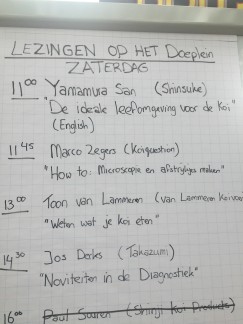 LEZINGEN OP HET Doeplein
ZATERDAG
11:00 Yamamura San (Shinsuke)
"De ideale leefomgeving voor de Koi"
(English)
11:45 Marco Zegers (Koiquestion)
"How to: Microscopie en afstrijkjes maken"
13:00 Toon van Lammeren (van Lammeren Koivoer)
"Weten wat je koi eten"
14:30 Jos Derks (Takazumi)
"Noviteiten in de Diagnostiek"
16:00 Paul Suuren (Shinji Koi Products)